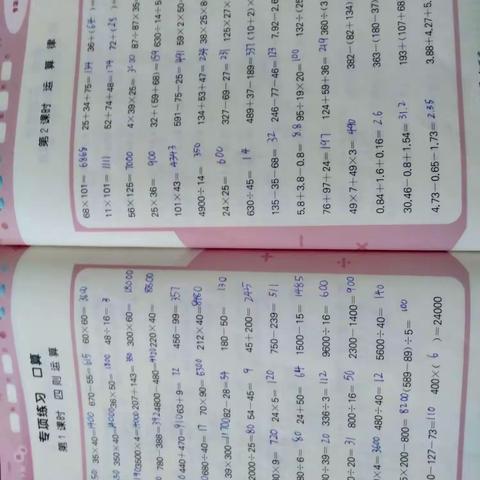 专项练习 口算
第1课时 四则运算
35×40=1400 670-55=615 60×60=3600
350×40=14000 36×50=1800 48÷16=3
3500×4=14000 207+143= 300×60=18000
780-388=392 4800-480=4320 220×40=8800
440+470=910 63÷9= 456-99=357
680÷40=17 70×90=6300 212×40=8480
39×300=11700 82-28=54 180-50=130
2000÷25=80 54-45=9 45+200=245
×9=720 24×5=120 750-239=511
80÷6=80 24+50=64 1500-15=1485
÷39=20 336÷3=112 9600÷16=600
÷20=31 800÷16=50 2300-1400=900
×4=3600 480÷40=12 5600÷40=140
×200-800=8200 (589-89)÷5=100
-127-73=110 400×(6)=24000
第2课时 运算律
68×101=6868 25+34+75=134 36+(64
11×101=1111 52+74+48=174 72+(28
56×125=7000 4×39×25=3900 87÷87×35
25×36=900 32+(59+68)=159 630÷14÷5
101×43=4343 591-75-25=491 59×2×50
4900÷14=350 134+53+47=234 38×25×
24×25=600 327-69-27=231 125×27×
630÷45=14 489+37-189=337 (10+2)×
135-35-68=32 246-77-46=123 7.92-2.6
5.8+3.8-0.8=8.8 95÷19×20=100 132÷(25
76+97+24=197 124+59+36=219 360÷(3
49×7+49×3=490 382-(82+134)
0.84+1.6+0.16=2.6 363-(180-37)
30.46-0.8+1.54=31.2 193+(107+68
4.73-0.65-1.73=2.35 3.88+4.27+5.